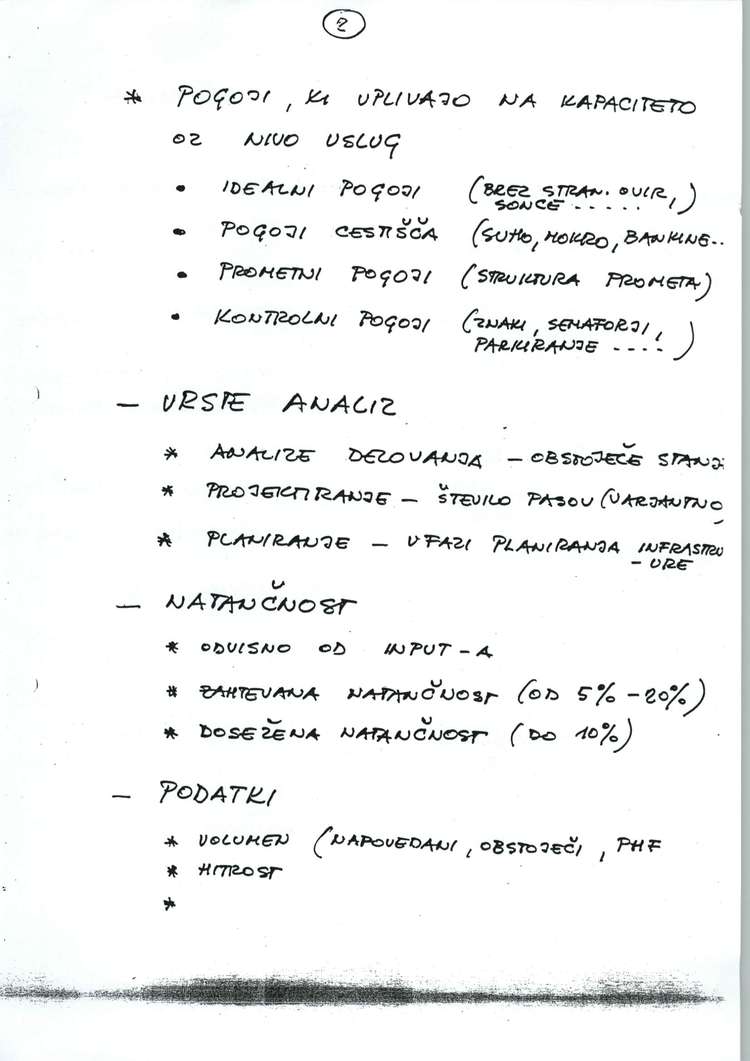 2
* POGOJI, KI VPLIVAJO NA KAPACITETO
OZ NIVO USLUG
• IDEALNI POGOJI (BREZ STRAN. OVIR,
SONCE .....)
• POGOJI CESTIŠČA (SUHO, MOKRO, BANKINE..
• PROMETNI POGOJI (STRUKTURA PROMETA)
• KONTROLNI POGOJI (ZNAKI, SEMAFORJI,
PARKIRANJE ....)
– VRSTE ANALIZ
* ANALIZE DELOVANJA – OBSTOJEČE STANJ
* PROJEKTIRANJE – ŠTEVILO PASOV (VARJANTNO
* PLANIRANJE – V FAZI PLANIRANJA INFRASTRU
– URE
– NATANČNOST
* ODVISNO OD INPUT-A
* ZAHTEVANA NATANČNOST (OD 5% – 20%)
* DOSEŽENA NATANČNOST (DO 10%)
– PODATKI
* VOLUMEN (NAPOVEDANI, OBSTOJEČI, PHF
* HITROST
*